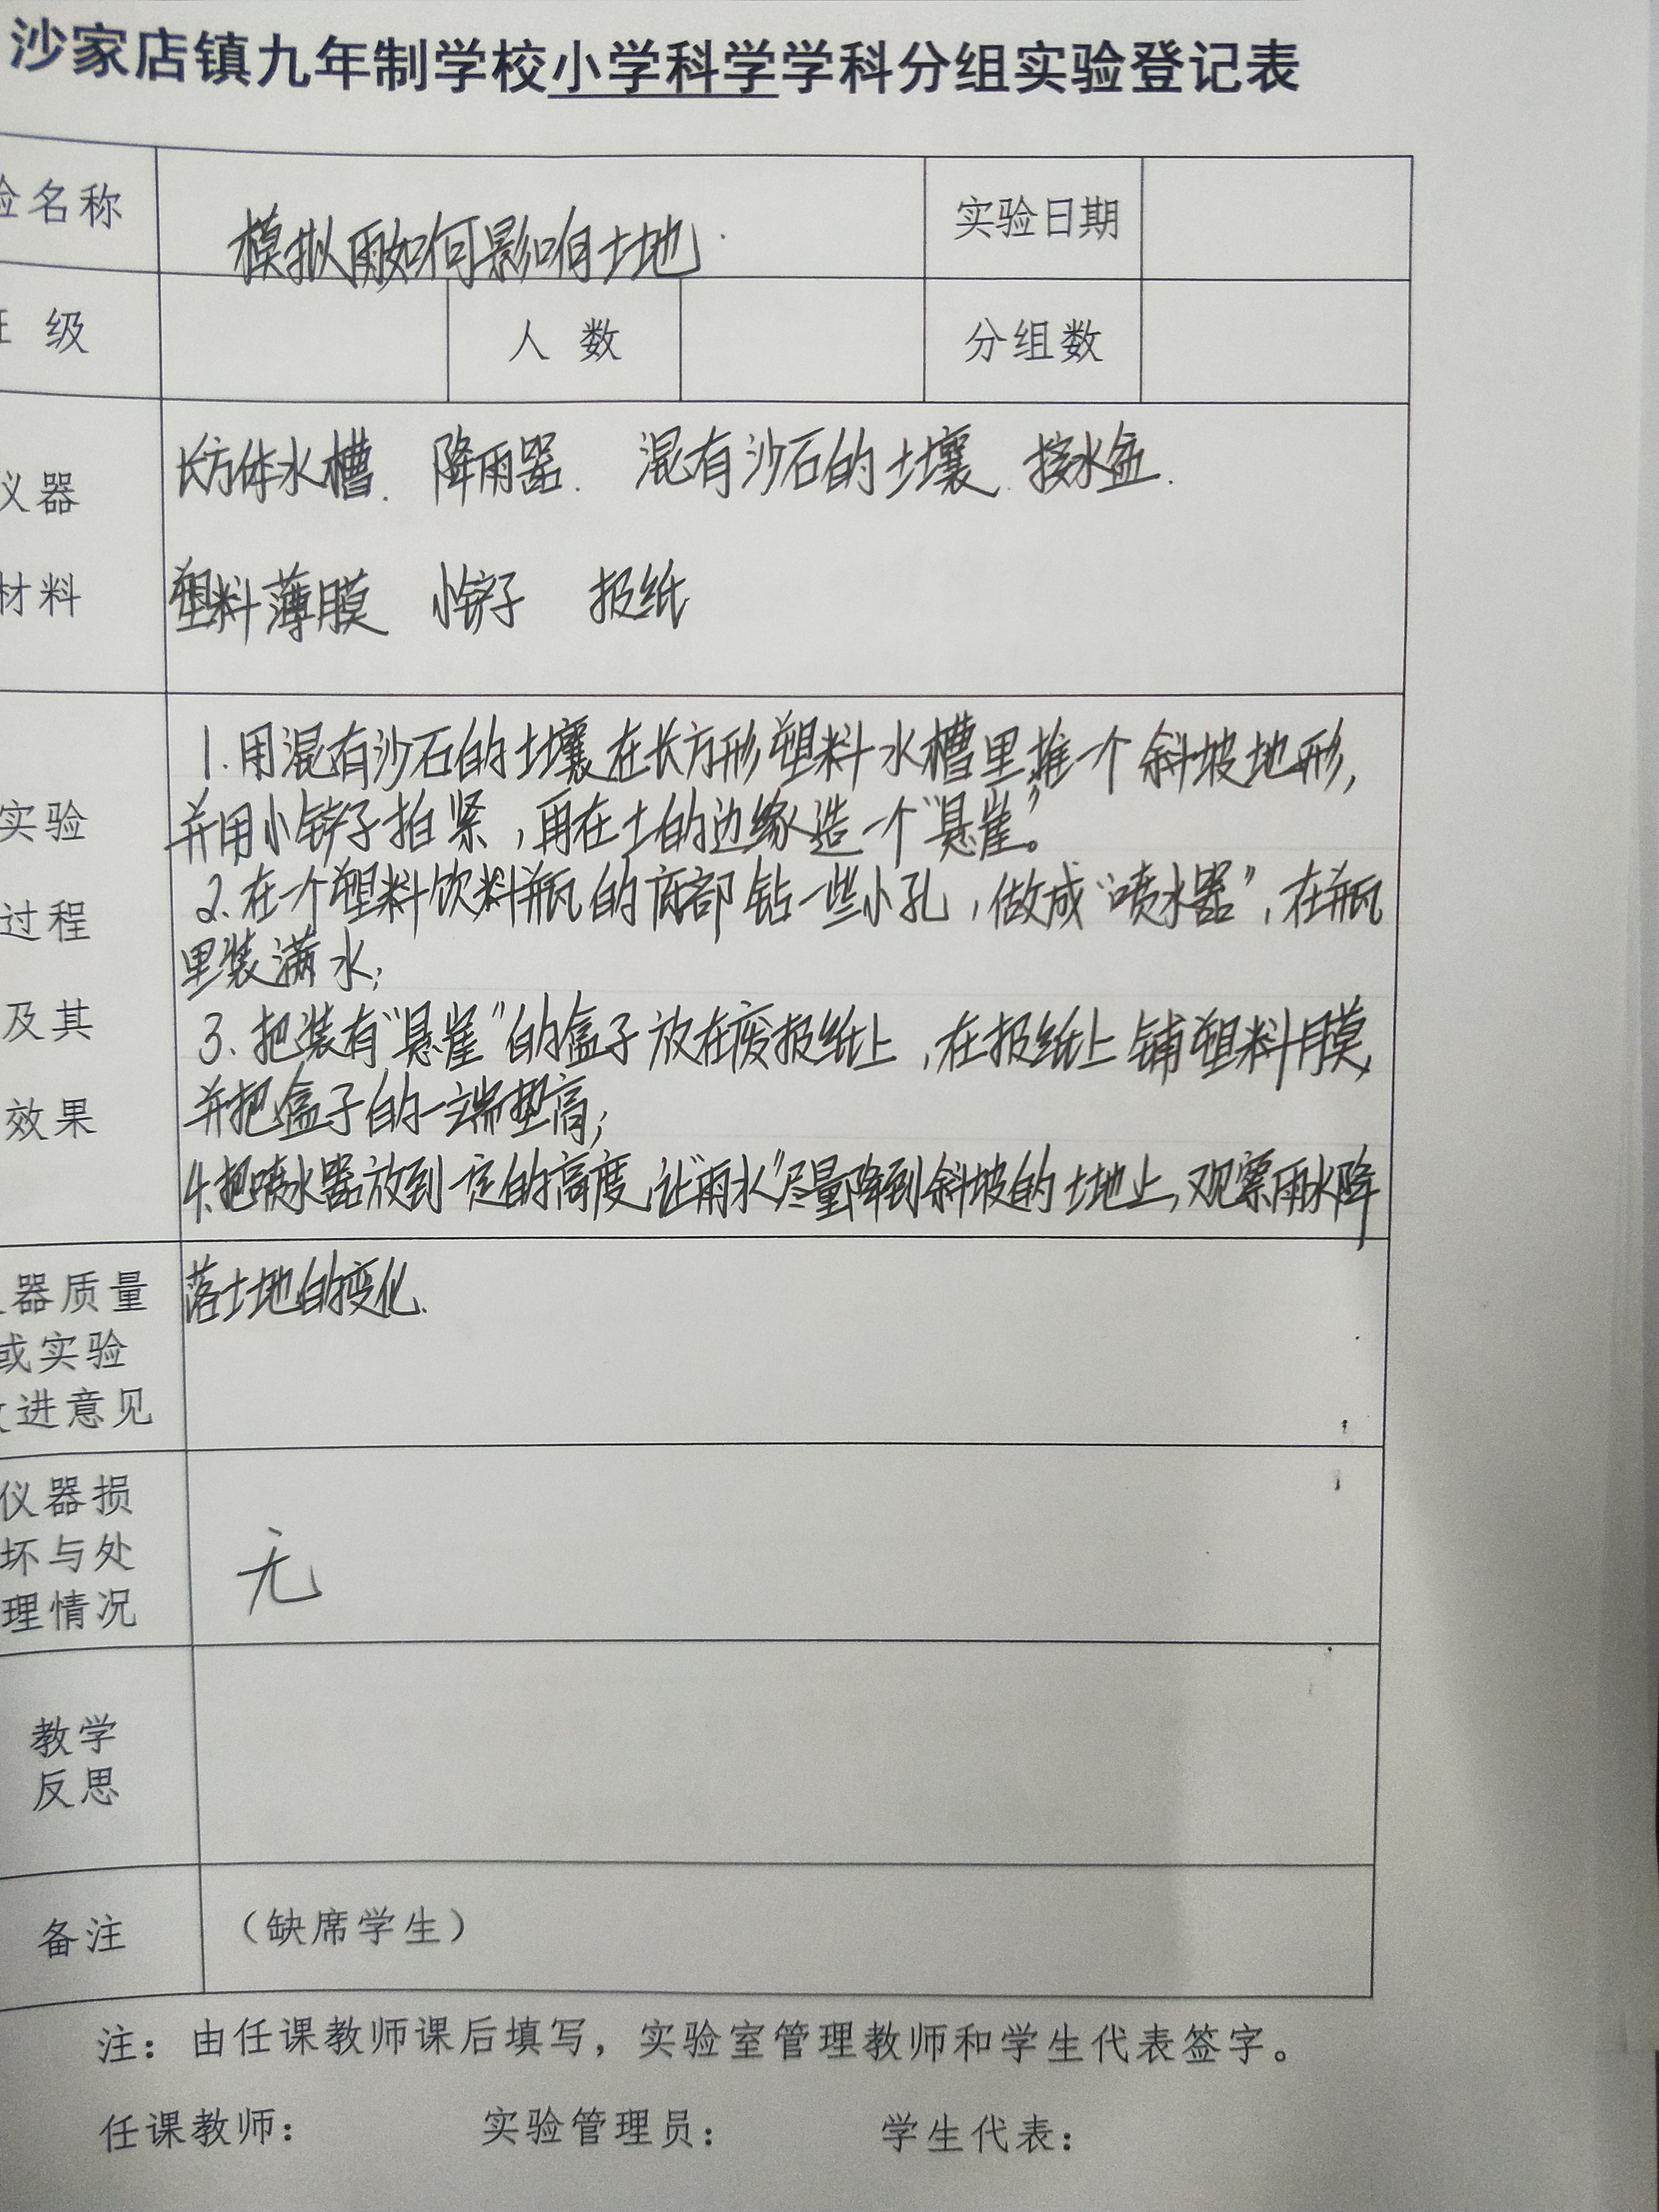 沙家店镇九年制学校小学科学学科分组实验登记表
验名称 模拟雨如何影响土地. 实验日期
班 级 人 数 分组数
仪器 长方体水槽. 降雨器. 混有沙石的土壤. 接水盆.
材料 塑料薄膜 小铲子 报纸
1.用混有沙石的土壤在长方形塑料水槽里堆一个斜坡地形,
实验 并用小铲子拍紧,再在土的边缘造一个“悬崖”。
2.在一个塑料饮料瓶的底部钻一些小孔,做成“喷水器”,在瓶
过程 里装满水;
及其 3.把装有“悬崖”的盒子放在废报纸上,在报纸上铺塑料膜,
效果 并把盒子的一端垫高;
4.把喷水器放到一定的高度,让“雨水”尽量降到斜坡的土地上,观察雨水降
器质量 落土地的变化.
或实验
改进意见
仪器损
坏与处 无
理情况
教学
反思
备注 （缺席学生）
注：由任课教师课后填写，实验室管理教师和学生代表签字。
任课教师： 实验管理员： 学生代表：